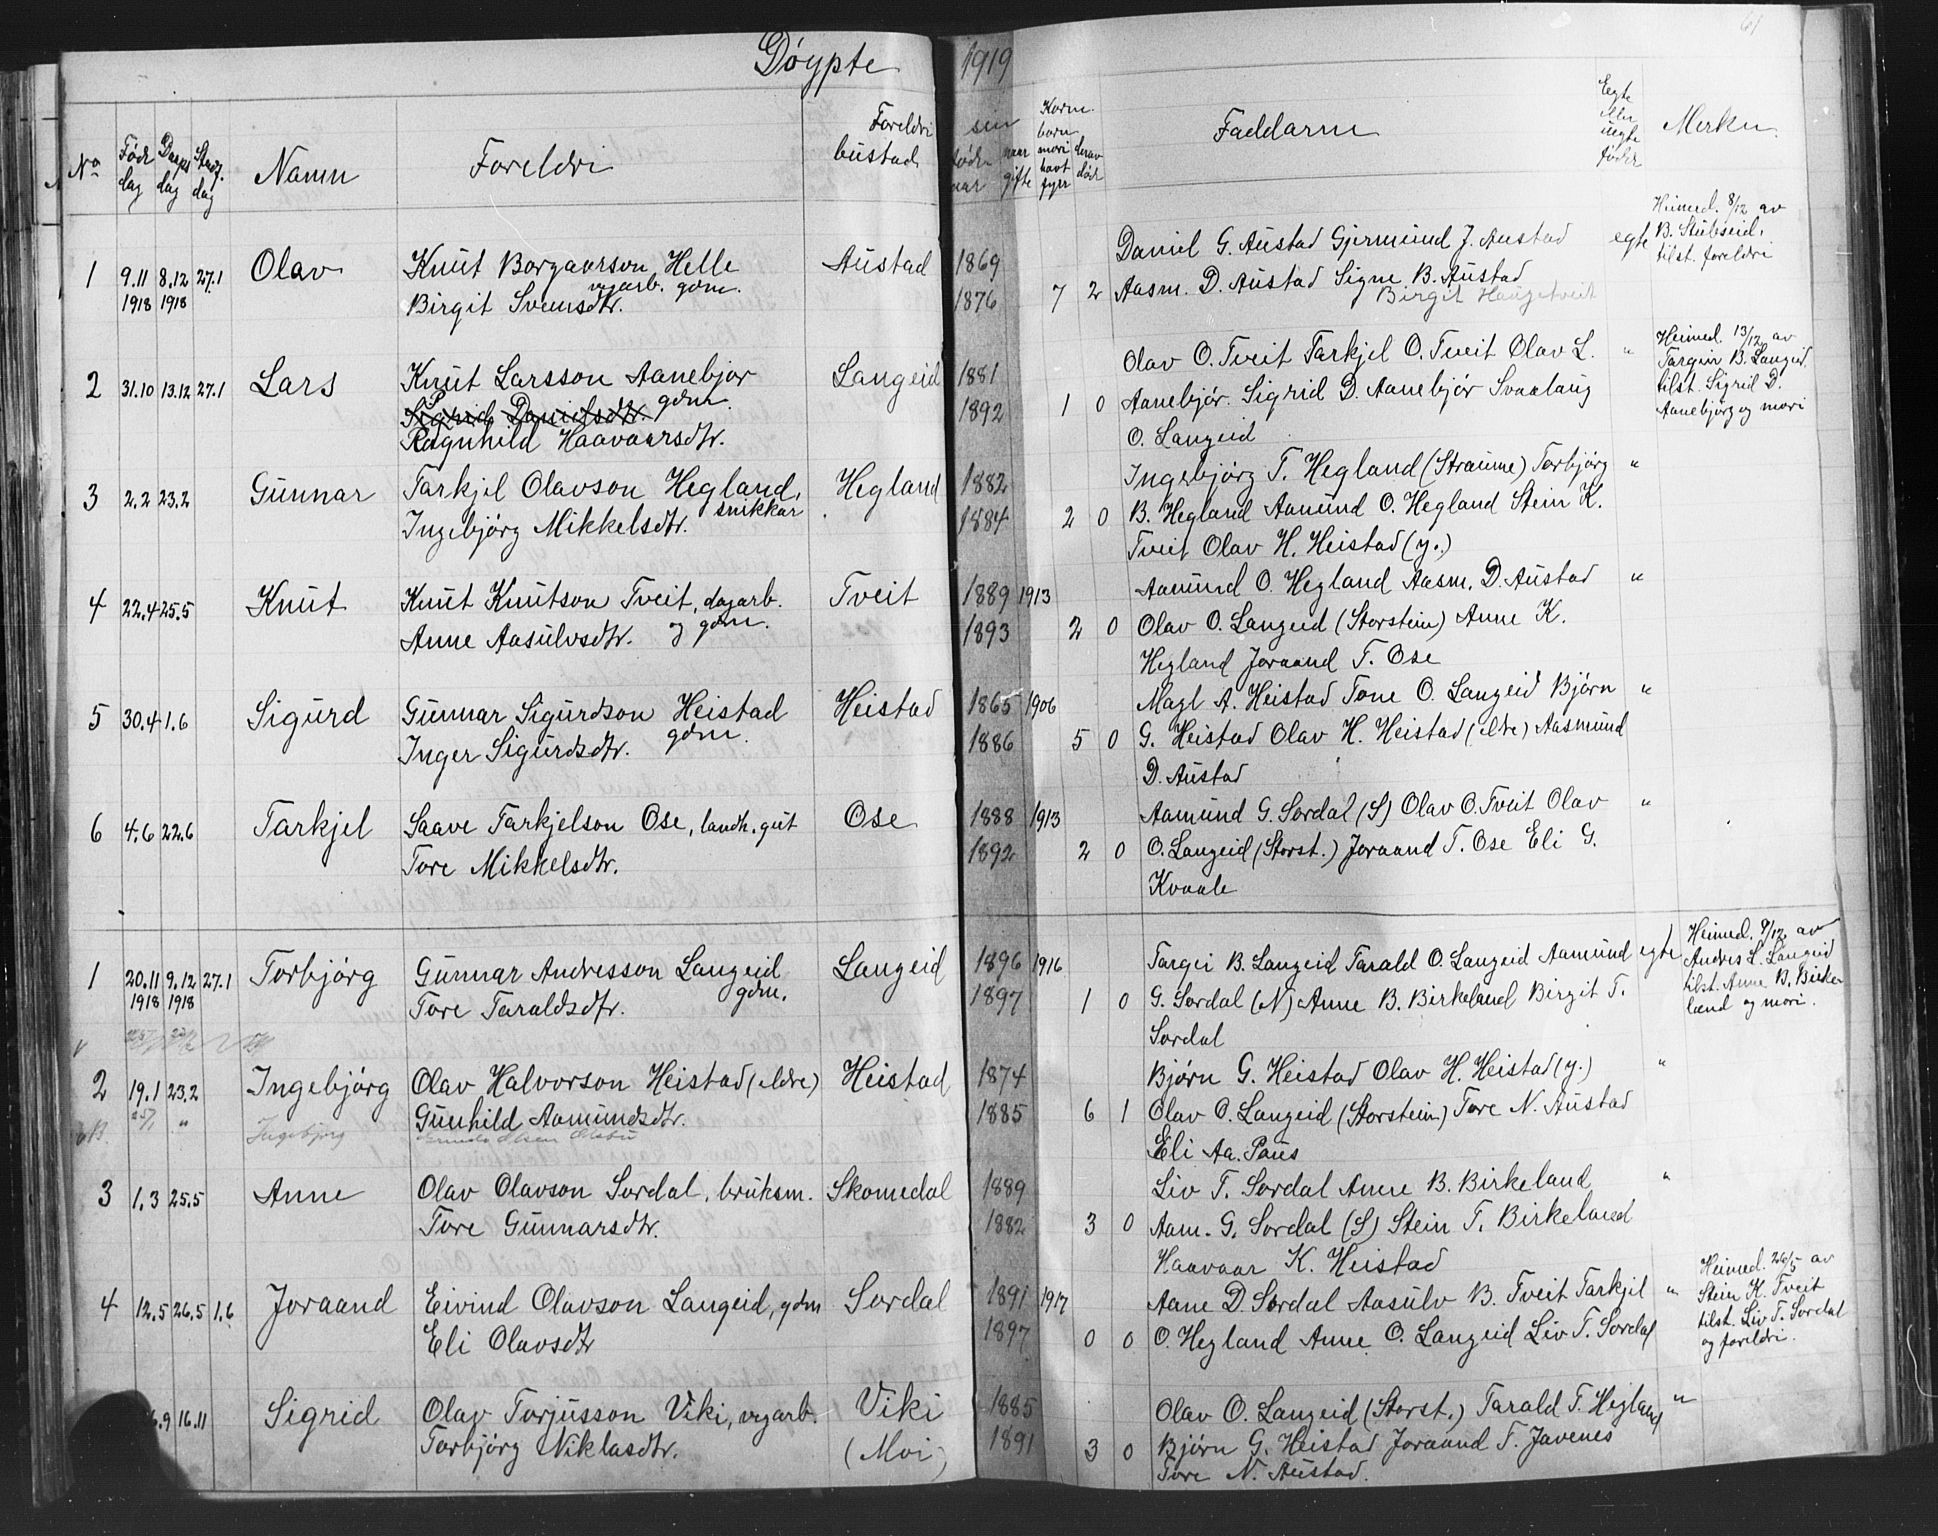 Døypte 1919
61
No Fødedag Døpsdag Stadf. dag Namn Foreldri Foreldri bustad sin føde aar naar gifte Korm. born mori havt fyrr derav død Faddarar Egte eller uegte fødde Merken.
1 9.11 8.12 27.1 Olav Knut Borgaarson Helle Austad 1869 Daniel G. Austad Gjermund J. Austad egte Heimed. 8/12 av
1918 1918 vegarb. gdm. B. Stubseid,
Birgit Svensdtr. 1876 7 2 Aasm. D. Austad Signe B. Austad tilst. foreldri
Birgit Haugetveit
2 31.10 13.12 27.1 Lars Knut Larsson Aanebjør Langeid 1881 Olav O. Tveit Tarkjel O. Tveit Olav L. " Heimed. 13/12 av
gdm. Targeir B. Langeid
Sigrid Danielsdtr. 1892 1 0 Aanebjør. Sigrid D. Aanebjør Svaalaug tilst. Sigrid D.
Ragnhild Haavaarsdtr. O. Langeid Aanebjørg og mori
3 2.2 23.2 Gunnar Tarkjel Olavson Hegland, Hegland 1882 Ingebjørg T. Hegland (Straume) Torbjørg "
snikkar
Ingebjørg Mikkelsdtr. 1884 2 0 B. Hegland Aamund O. Hegland Stein K.
Tveit Olav H. Heistad (y.)
4 22.4 25.5 Knut Knut Knutson Tveit, dagarb. Tveit 1889 1913 Aamund O. Hegland Aasm. D. Austad "
og gdm.
Anne Aasulvsdtr. 1893 2 0 Olav O. Langeid (Storstein) Anne K.
Hegland Joraand T. Ose
5 30.4 1.6 Sigurd Gunnar Sigurdson Heistad Heistad 1865 1906 Magl A. Heistad Tone O. Langeid Bjørn "
gdm.
Inger Sigurdsdtr. 1886 5 0 G. Heistad Olav H. Heistad (eldre) Aasmund
D. Austad
6 4.6 22.6 Tarkjel Saave Tarkjelson Ose, landh. gut Ose 1888 1913 Aamund G. Sordal (S) Olav O. Tveit Olav "
Tore Mikkelsdtr. 1892 2 0 O. Langeid (Storst.) Joraand T. Ose Eli G.
Kvaale
1 20.11 9.12 27.1 Torbjørg Gunnar Andresson Langeid Langeid 1896 1916 Targei B. Langeid Tarald O. Langeid Aamund egte Heimed. 9/12 av
1918 1918 gdm. Andres L. Langeid
Tore Taraldsdtr. 1897 1 0 G. Sordal (N) Anne B. Birkeland Birgit T. tilst. Anne B. Birke-
Sordal land og mori.
2 19.1 23.2 Ingebjørg Olav Halvorson Heistad (eldre) Heistad 1874 Bjørn G. Heistad Olav H. Heistad (y.) "
Gunhild Aamundsdtr. 1885 6 1 Olav O. Langeid (Storstein) Tore N. Austad
Ingebjørg Eli Aa. Paus
3 1.3 25.5 Anne Olav Olavson Sordal, bruksm. Skomedal 1889 Liv T. Sordal Anne B. Birkeland "
Tore Gunnarsdtr. 1882 3 0 Aam. G. Sordal (S) Stein T. Birkeland
Haavaar K. Heistad
4 12.5 26.5 1.6 Joraand Eivind Olavson Langeid, gdm Sordal 1891 1917 Aane D. Sordal Aasulv B. Tveit Tarkjil " Heimed. 26/5 av
Stein K. Tveit
Eli Olavsdtr 1897 0 0 O. Hegland Anne O. Langeid Liv T. Sordal tilst. Liv T. Sordal
og foreldri.
6.9 16.11 Sigrid Olav Torjusson Viki, vegarb. Viki 1885 Olav O. Langeid (Storst.) Tarald T. Hegland "
Torbjørg Niklasdtr. (Moi) 1891 3 0 Bjørn G. Heistad Joraand T. Javenes
Tore N. Austad.